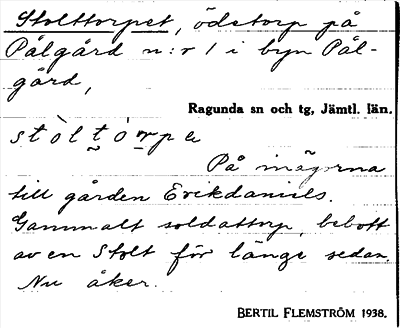 Stolttorpet, ödetorp på
Pålgård n:r 1 i byn Pål-
gård,
Ragunda sn och tg, Jämtl. län.
stòltórpe
På inägorna
till gården Erikdaniels.
Gammalt soldattorp, bebott
av en Stolt för länge sedan.
Nu åker.
BERTIL FLEMSTRÖM 1938.